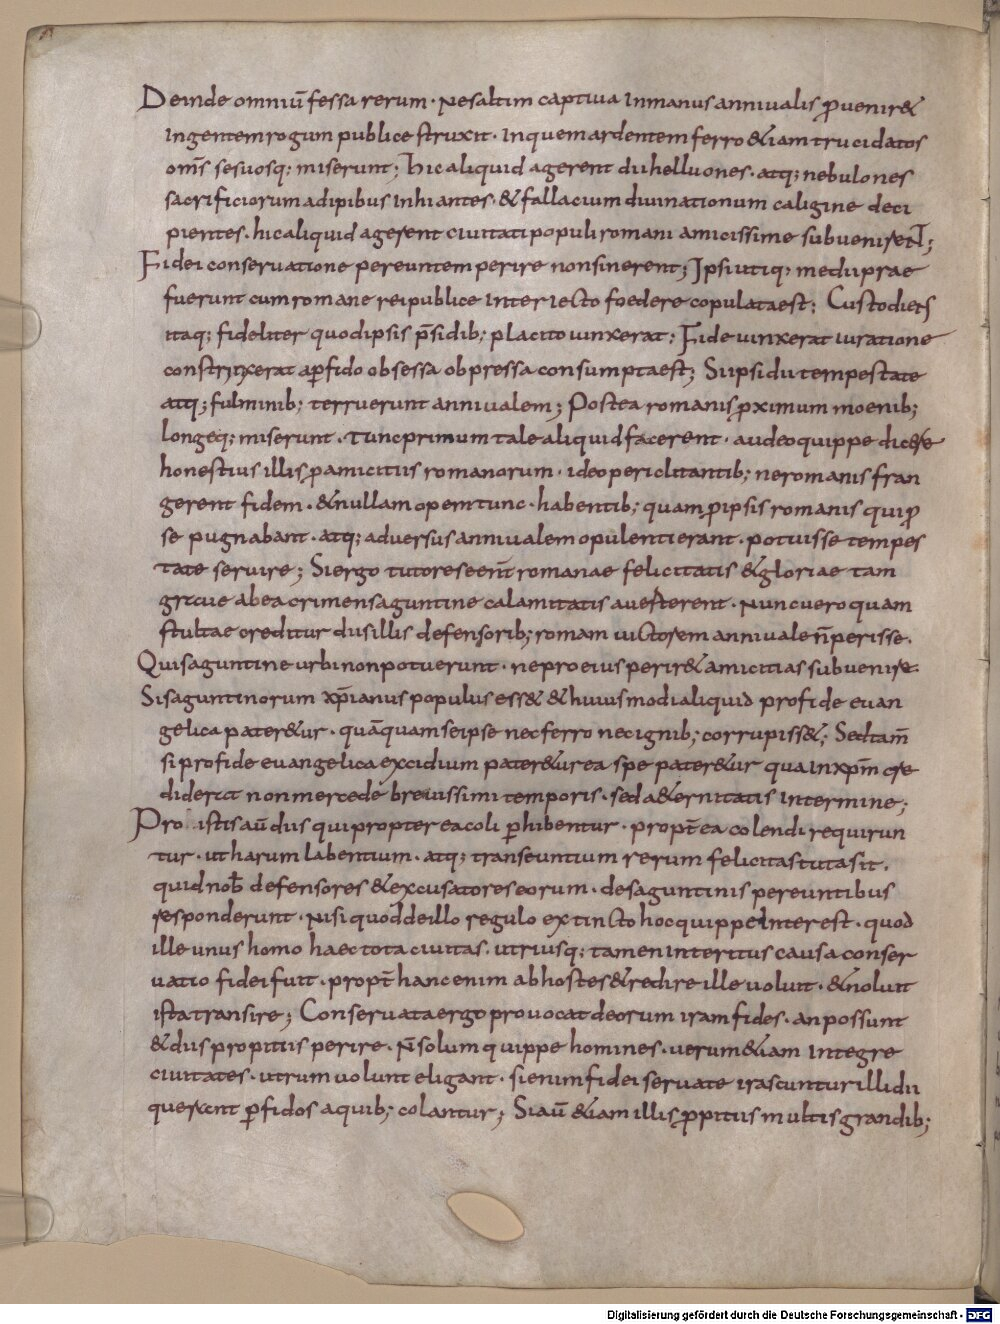 Deinde omniū fessa rerum · Nesaltim captiua inmanus anniualis ꝓuenir&
ingentemrogum publice struxit · inquemardentemferro &iamtrucidatos
om̄s sesuosq; miserunt; hicaliquid agerent diihelluones · atq; nebulones
sacrificiorum adipibus inhiantes · & fallacium diuinationum caligine deci
pientes · hicaliquid agerent ciuitatipopuliromani amicissime subuenirent;
Fidei conseruatione pereuntemperire nonsinerent; Ipsiutiq; mediiprae
fuerunt cumromane reipublice interiecto foedere copulataest; Custodiens
itaq; fideliter quodipsis p̄sidib; placitouinxerat; Fideuinxerat iuratione
constrinxerat aꝑfido obsessa obpressa consumptaest; Siipsidii tempestate
atq; fulminib; terruerunt anniualem; Postea romanisꝓximum moenib;
longeq; miserunt · Tuncprimum talealiquidfacerent · audeoquippe dicere
honestius illisꝓamicitiis romanorum · ideopericlitantib; neromanis fran
gerent fidem · &nullamopemtunc · habentib; quamꝓipsis romanis quiꝓ
se pugnabant · atq; aduersus anniualemopulentierant · potuisse tempes
tate seruire; Siergo tutoreseen̄t romanae felicitatis &gloriae tam
graue abeacrimensaguntine calamitatis auerterent · Nuncuero quam
stultae creditur diisillis defensorib; romam uictorem anniuale n̄perisse ·
Quisaguntine urbinonpotuerunt · neproeiusperir& amicitias subuenire ·
Sisaguntinorum xp̄ianus populus ess& & huiusmodialiquid profide euan
gelica pater&ur · quāquamseipse necferro necignib; corrupiss&; Sedtam̄
siprofide euangelica excidium pater&urea spe pater&ur quainxp̄m cre
diderat nonmercede breuissimi temporis · seda&ernitatis intermine;
Pro istisaū diis quipropter eacoli ꝑhibentur · propt̄ea colendi requirun
tur · utharumlabentium · atq; transeuntium rerum felicitastutasit ·
quidnob̄ defensores &excusatoreseorum · desaguntinis pereuntibus
responderunt · Nisi quoddeillo regulo extincto hocquippeinterest · quod
ille unus homo haectotaciuitas · utriusq; tameninteritus causa conser
uatio fideifuit · propt̄ hancenim abhostes&redire ille uoluit · &noluit
istatransire; Conseruataergo prouocatdeorum iramfides · anpossunt
&diis propitiis perire · N̄solum quippe homines · uerum&iam integre
ciuitates · utrumuolunt eligant · sienimfideiseruate irascunturillidii
querent ꝑfidos aquib; colantur; Siaū &iamillisꝓpitiis multisgrandib;
Digitalisierung gefördert durch die Deutsche Forschungsgemeinschaft - DFG